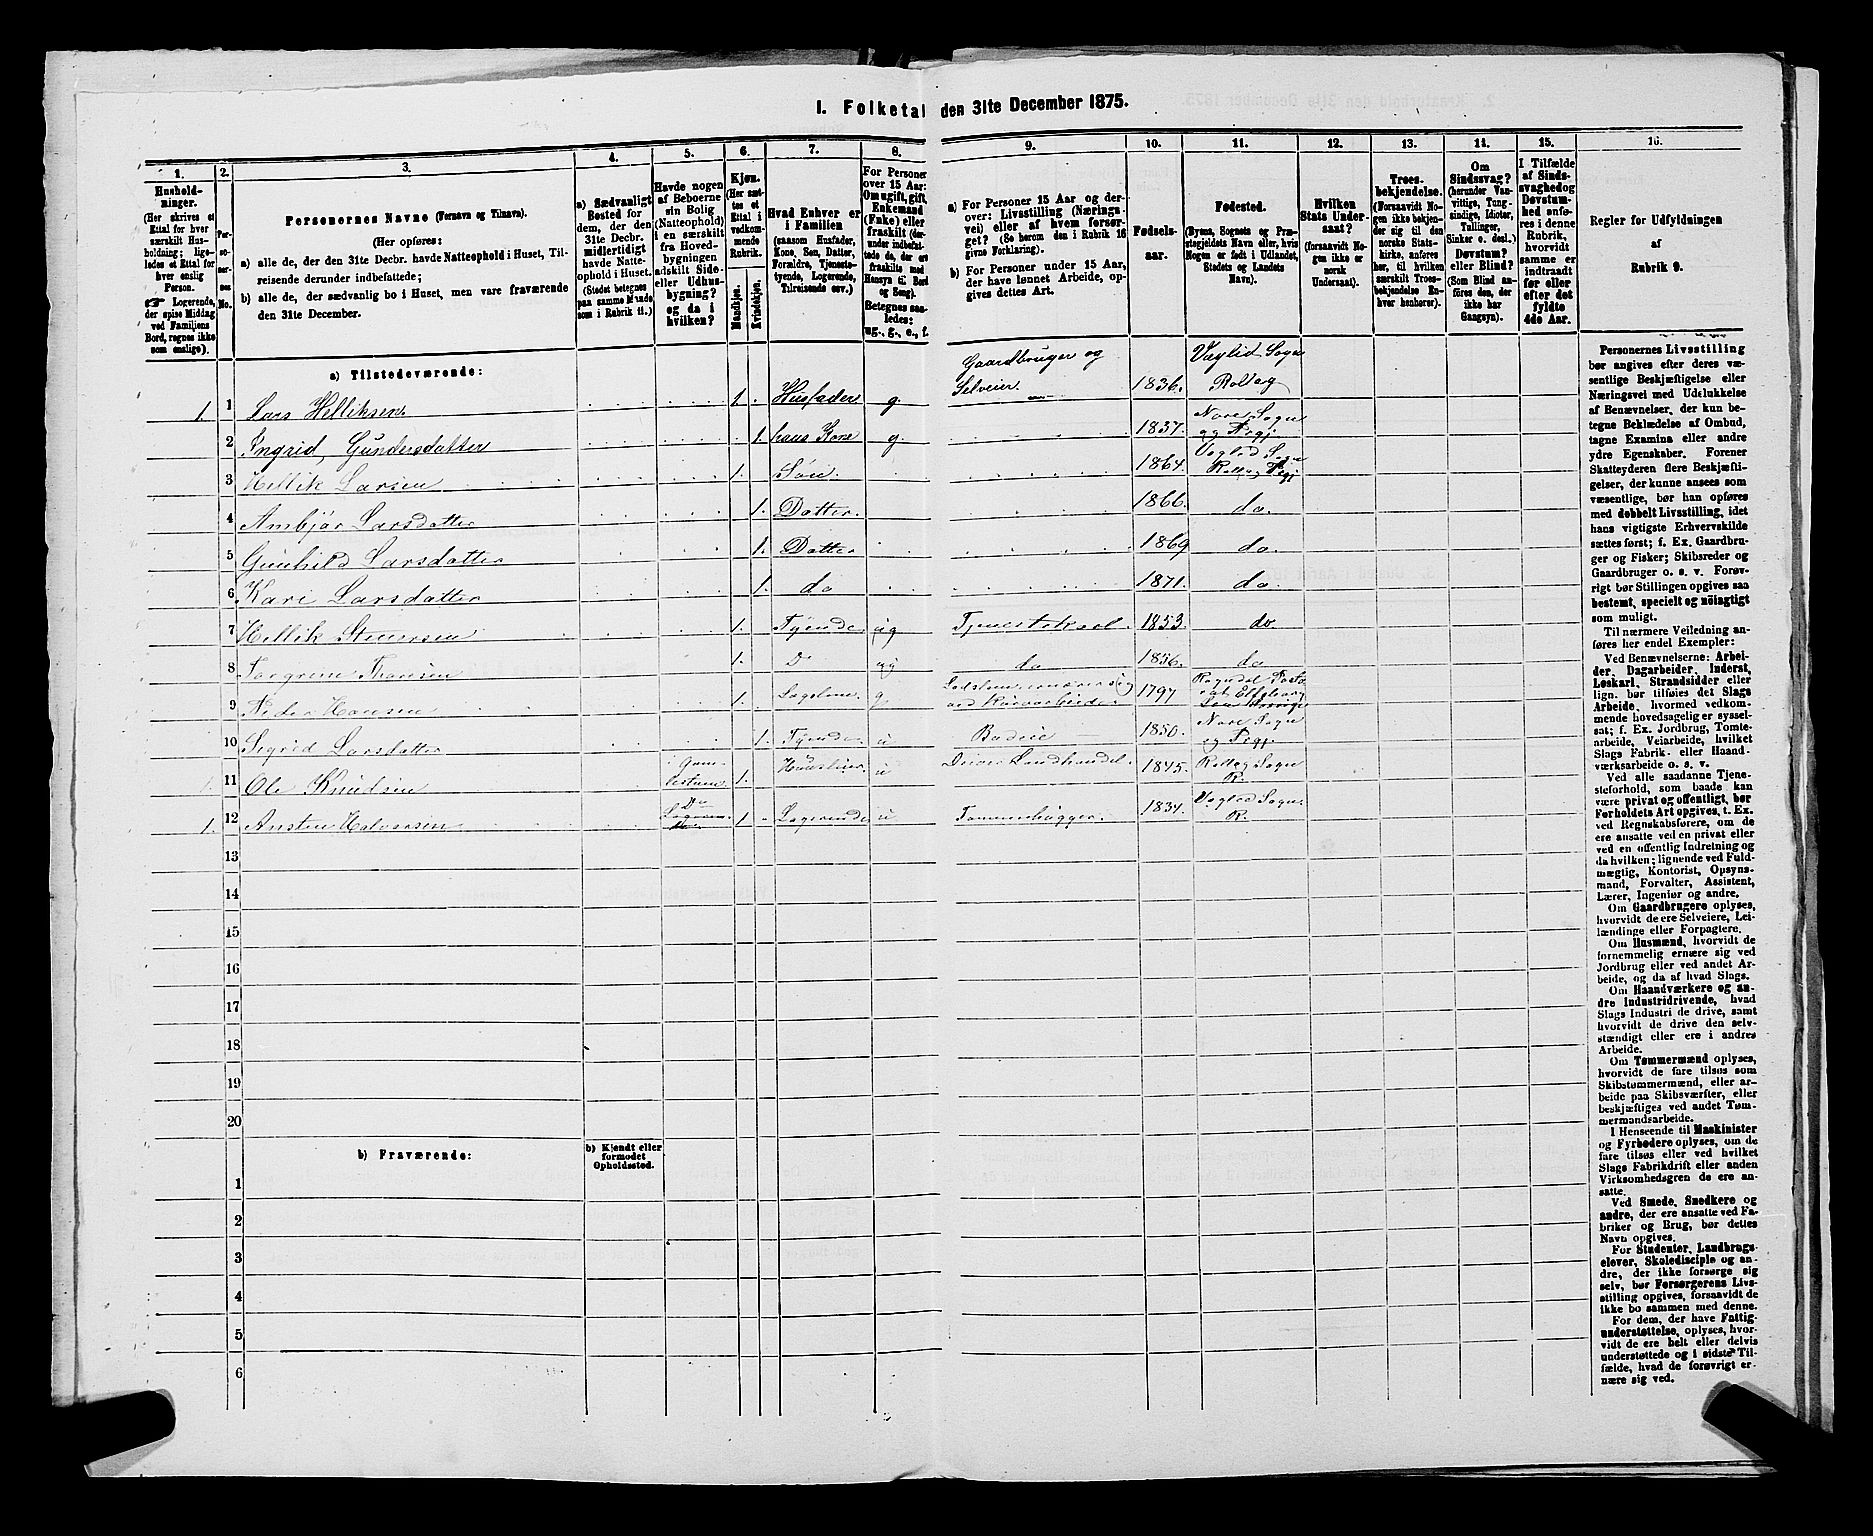 I. Folketal den 31te December 1875.
1. 2. 3. 4. 5. 6. 7. 8. 9. 10. 11. 12. 13. 14. 15. 16.
Hushold-
ninger.
(Her skrives et
Ettal for hver
særskilt Hus-
holdning; lige-
ledes et Ettal for
hver enslig
Person.
☞ Logerende,
der spise Middag
ved Familiens
Bord, regnes ikke
som enslige).
Per-
so-
ner-
nes
No.
Personernes Navne (Fornavn og Tilnavn).
(Her opføres:
a) alle de, der den 31te Decbr. havde Natteophold i Huset, Til-
reisende derunder indbefattede;
b) alle de, der sædvanlig bo i Huset, men vare fraværende
den 31te December.
a) Sædvanligt
Bosted for
dem, der den
31te Decbr.
midlertidigt
havde Natte-
ophold i Huset.
(Stedet betegnes
paa samme Maade
som i Rubrik 11.)
Havde nogen
af Beboerne
sin Bolig
(Natteophold)
i en særskilt
fra Hoved-
bygningen
adskilt Side-
eller Udhus-
bygning?
og da i
hvilken?
Kjøn.
(Her sæt-
tes et
Ettal i
vedkom-
mende
Rubrik.
Mandkjøn.
Kvindekjøn.
Hvad Enhver er
i Familien
(saasom Husfader,
Kone, Søn, Datter,
Forældre, Tjeneste-
tyende, Logerende,
Tilreisende osv.)
For Personer
over 15 Aar:
Om ugift, gift,
Enkemand
(Enke) eller
fraskilt (der-
under indbefat-
tede, de der ere
fraskilte med
Hensyn til Bord
og Seng).
Betegnes saa-
ledes:
ug., g., e., f.
a) For Personer 15 Aar og der-
over: Livsstilling (Nærings-
vei) eller af hvem forsør-
get? (Se herom den i Rubrik 16
givne Forklaring).
b) For Personer under 15 Aar,
der have lønnet Arbeide, op-
gives dettes Art.
Fødsels-
aar.
Fødested.
(Byens, Sognets og Præ-
stegjeldets Navn eller, hvis
Nogen er født i Udlandet,
Stedets og Landets
Navn).
Hvilken
Stats Under-
saat?
(forsaavidt No-
gen ikke er
norsk
Undersaat).
Troes-
bekjendelse.
(Forsaavidt No-
gen ikke bekjen-
der sig til den
norske Stats-
kirke, anføres
her, til hvilken
særskilt Troes-
bekjendelse En-
hver henhører).
Om
Sindssvag?
(herunder Van-
vittige, Tung-
sindige, Idioter,
Sinker o. desl.)
Døvstum?
eller Blind?
(Som Blind an-
føres den, der
ikke har
Gangsyn).
I Tilfælde
af Sinds-
svaghed og
Døvstum-
hed anfø-
res i denne
Rubrik,
hvorvidt
samme er
indtraadt
før eller
efter det
fyldte
4de Aar.
Regler for Udfyldningen
af
Rubrik 9.
a) Tilstedeværende:
1. 1 Lars Helliksen 1. Husfader g. Gaardbruger og Selveier 1836. Væglid Sogn Rollag
2 Ingrid Gundersdatter 1. hans Kone g. 1837. Nore Sogn og Pregj
3 Hellik Larsen 1. Søn 1864. Væglid Sogn Rollag Pregj
4 Ambjør Larsdatter 1. Datter. 1866. do.
5 Gunhild Larsdatter 1. Datter 1869 do.
6 Kari Larsdatter 1. do 1871. do
7 Hellik Steensen 1. Tyende ug Tjenestekarl. 1853. do
8 Torgrim Thoresen 1. D ug do 1856. do
9 Peder Hansen 1. Lægslem g 1797
10 Sigrid Larsdatter 1. Tyende u Budeie 1850. Nore Sogn og Pregj.
1. 11 Ole Knudsen 1. u Landhandel. 1845. Rollag Sogn R.
1. 12 Do 1 Logerende u Tømmerhugger. 1834. Væglid Sogn R.
13
14
15
16
17
18
19
20
b) Fraværende:
b) Kjendt eller
formodet
Opholdssted.
1
2
3
4
5
6
Personernes Livsstilling
bør angives efter deres væ-
sentlige Beskjæftigelse eller
Næringsvei med Udelukkelse
af Benævnelser, der kun be-
tegne Beklædelse af Ombud,
tagne Examina eller andre
ydre Egenskaber. Forener
Skatteyderen flere Beskjæfti-
gelser, der kunne ansees som
væsentlige, bør han opføres
med dobbelt Livsstilling, idet
hans vigtigste Erhvervskilde
sættes først; f. Ex. Gaardbru-
ger og Fisker; Skibsreder og
Gaardbruger o. s. v. Forøv-
rigt bør Stillingen opgives saa
bestemt, specielt og nöiagtigt
som muligt.
Til nærmere Veiledning an-
føres her endel Exempler:
Ved Benævnelserne: Arbei-
der, Dagarbeider, Inderst,
Løskarl, Strandsidder eller
lign. bør tilføies det Slags
Arbeide, hvormed vedkom-
mende hovedsagelig er syssel-
sat; f. Ex. Jordbrug, Tomte-
arbeide, Veiarbeide, hvilket
Slags Fabrik- eller Haand-
værksarbeide o. s. v.
Ved alle saadanne Tjene-
steforhold, som baade kan
være privat og offentligt, bør
Forholdets Art opgives, t. Ex.
ved Regnskabsførere, om de
ere ansatte ved en privat eller
ved en offentlig Indretning og
da hvilken; lignende ved Fuld-
mægtig, Kontorist, Opsyns-
mand, Forvalter, Assistent,
Lærer, Ingeniør og andre.
Om Gaardbrugere oplyses,
hvorvidt de ere Selveiere, Lei-
lændinge eller Forpagtere.
Om Husmænd, hvorvidt de
fornemmelig ernære sig ved
Jordbrug eller ved andet Ar-
beide, og da af hvad Slags.
Om Haandværkere og an-
dre Industridrivende, hvad
Slags Industri de drive, samt
hvorvidt de drive den selv-
stændigt eller ere i andres
Arbeide.
Om Tømmermænd oplyses,
hvorvidt de fare tilsøs som
Skibstømmermænd, eller ar-
beide paa Skibsværfter, eller
beskjæftiges ved andet Tøm-
mermandsarbeide.
I Henseende til Maskinister
og Fyrbødere oplyses, om de
fare tilsøs eller ved hvilket
Slags Fabrikdrift eller anden
Virksomhedsgren de ere an-
satte.
Ved Smede, Snedkere og
andre, der ere ansatte ved Fa-
briker og Brug, bør dettes
Navn opgives.
For Studenter, Landbrugs-
elever, Skoledisciple og an-
dre, der ikke forsørge sig
selv, bør Forsørgerens Livs-
stilling opgives, forsaavidt de
ikke bo sammen med denne.
For dem, der have Fattig-
understøttelse, oplyses, hvor-
vidt de ere helt eller delvis
understøttede og i sidste Til-
fælde, hvad de forøvrigt er-
nære sig ved.